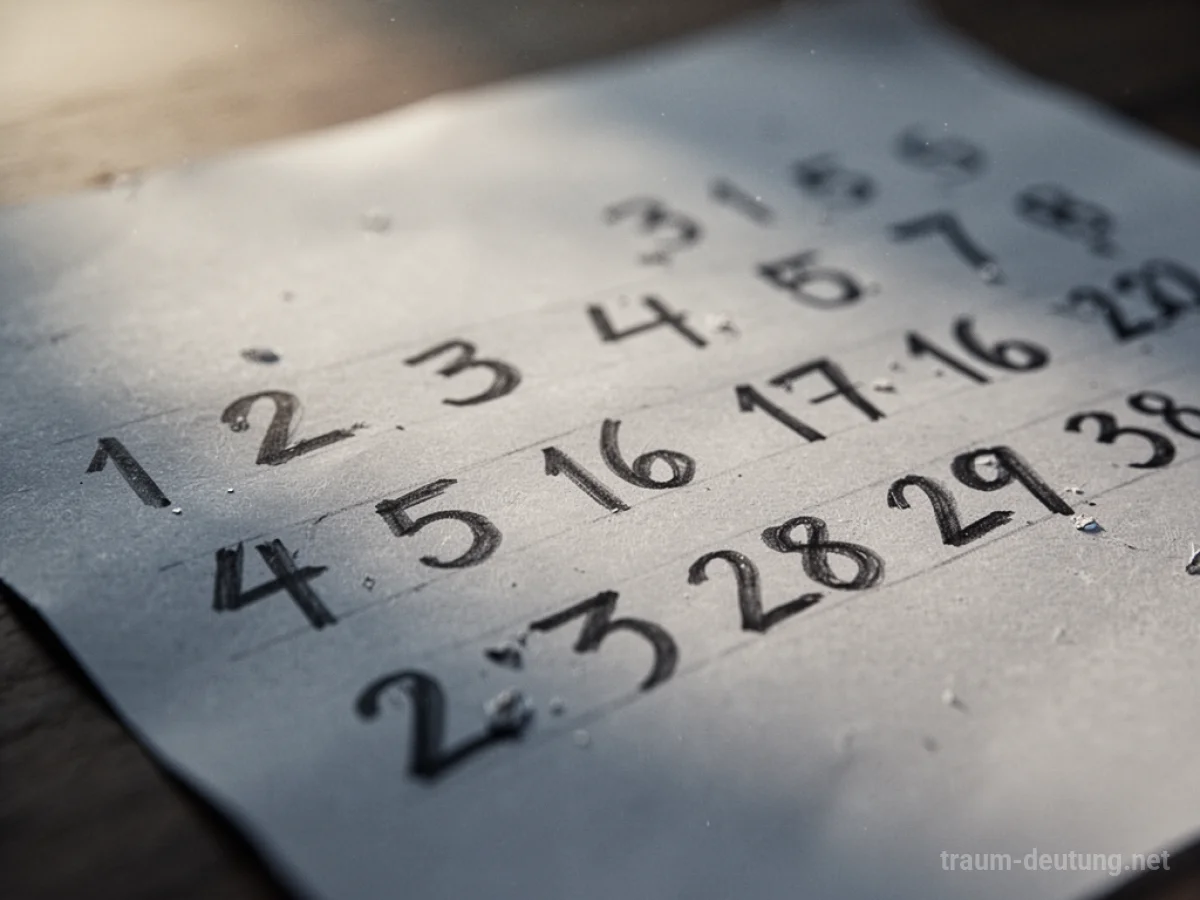 3 1
1 2 3 4 5 7 8
4 5 16 17 16 20
2 3 28 29 38
traum-deutung.net